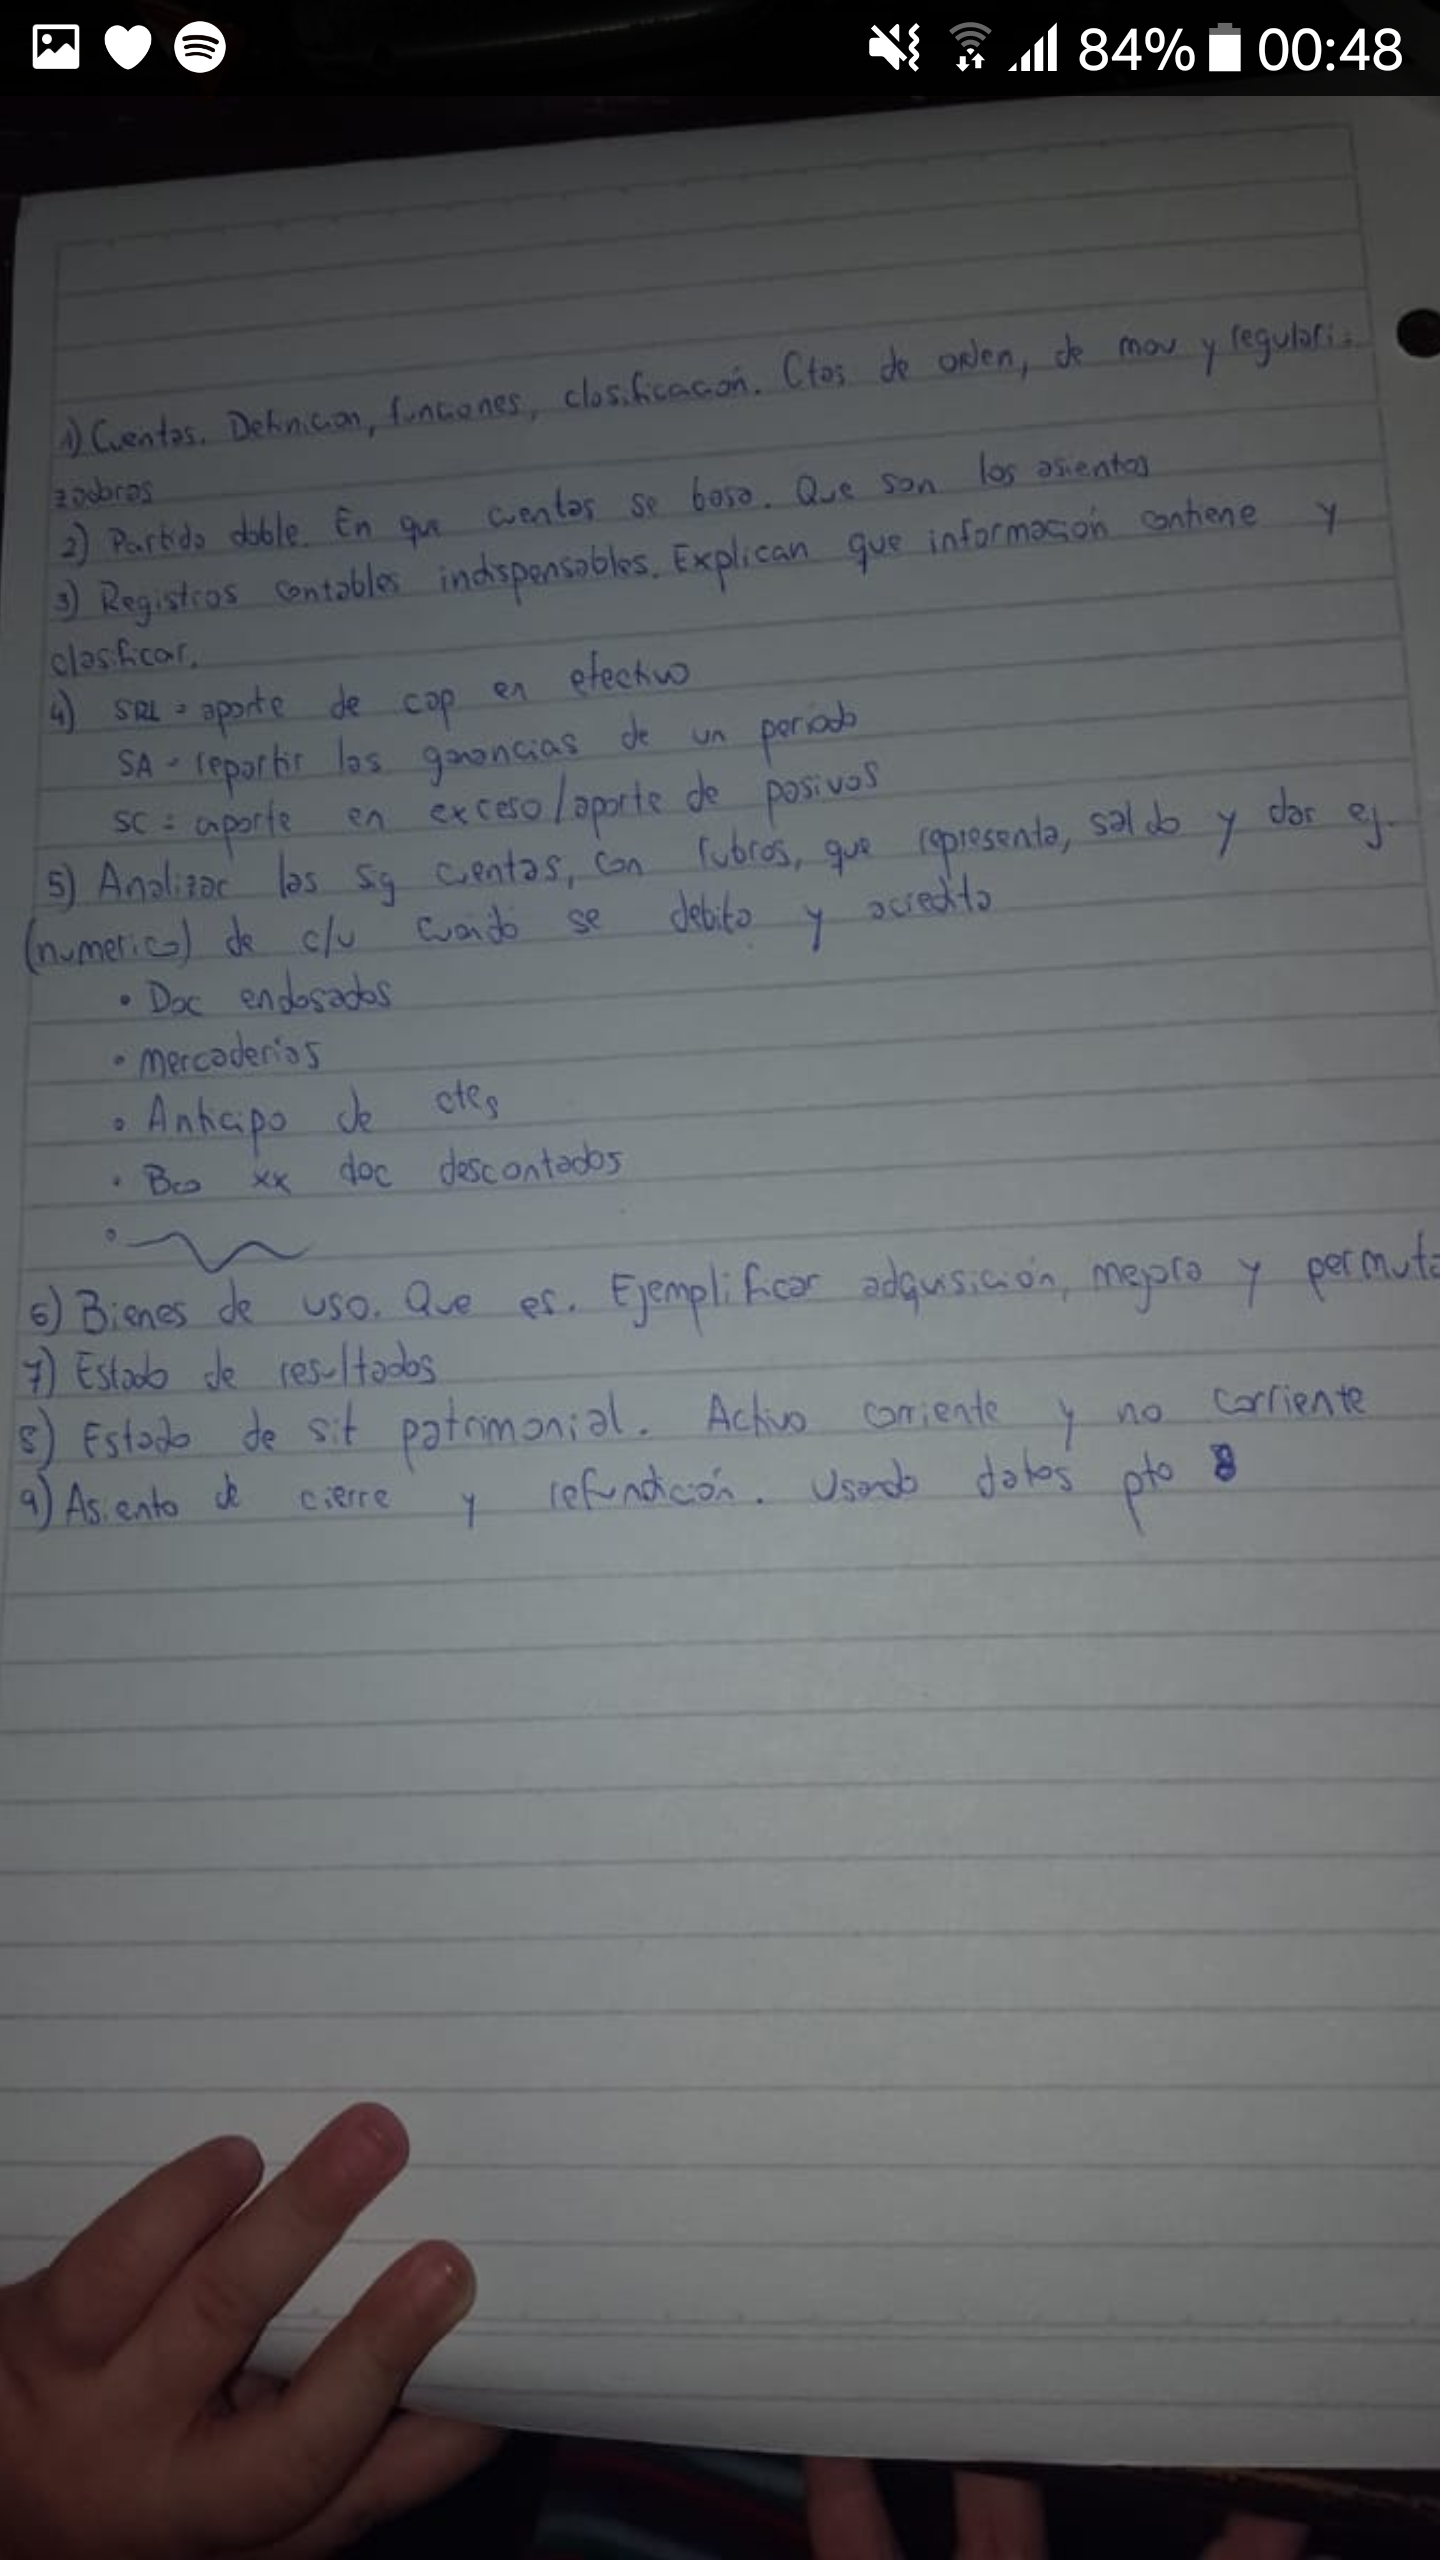 84% 00:48
1) Cuentas. Definicion, funciones, clasificación. Ctas de orden, de mov y regulari-
zadoras
2) Partida doble. En que cuentas se basa. Que son los asientos
3) Registros contables indispensables. Explican que información contiene y
clasificar.
4) SRL = aporte de cap en efectivo
SA = repartir las ganancias de un periodo
SC = aporte en exceso/aporte de pasivos
5) Analizar las sg cuentas, con rubros, que representa, saldo y dar ej.
(numerico) de c/u cuando se debita y acredita
• Doc endosados
• Mercaderias
• Anticipo de ctes
• Bco xx doc descontados
6) Bienes de uso. Que es. Ejemplificar adquisición, mejora y permuta
7) Estado de resultados
8) Estado de sit patrimonial. Activo corriente y no corriente
9) Asiento de cierre y refundición. Usando datos pto 8